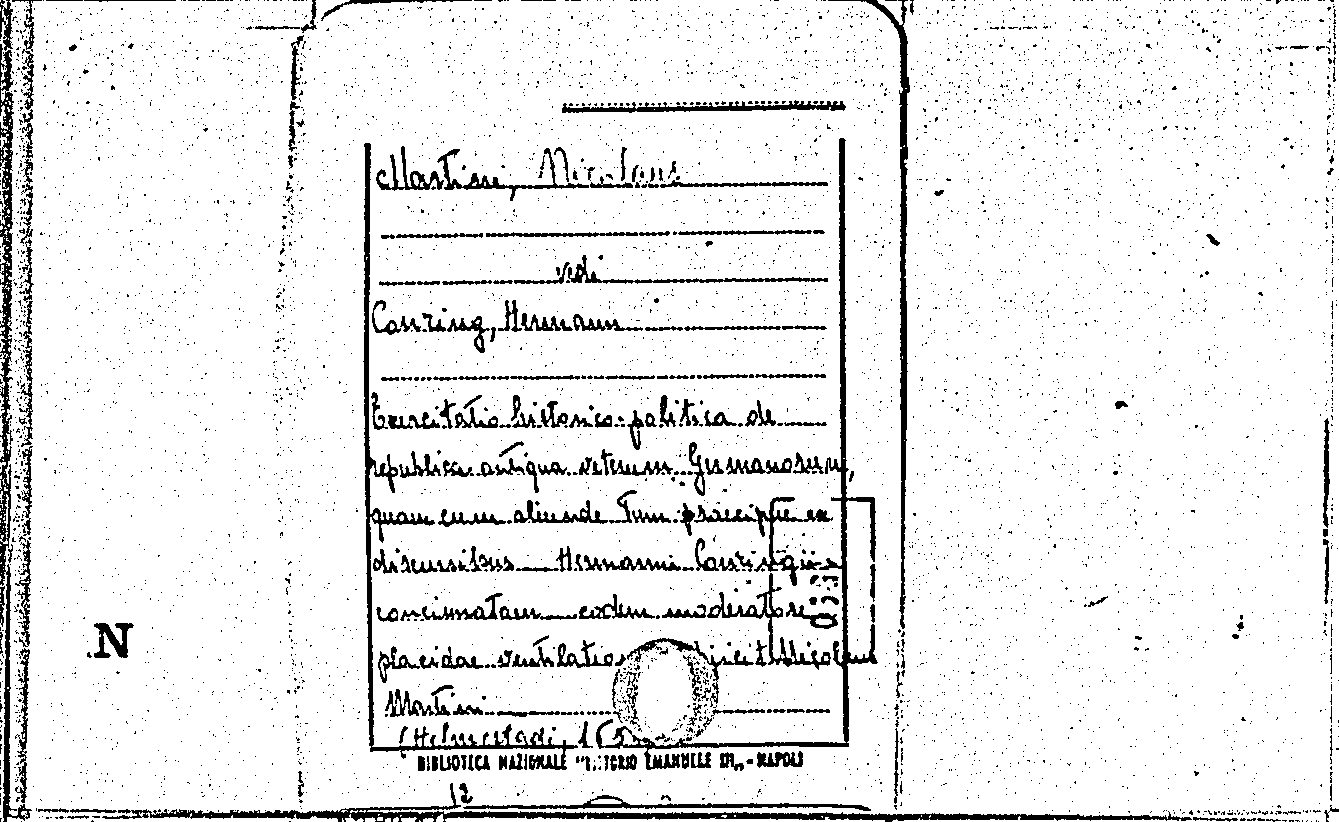 Martini, Nicolaus
vedi
Conring, Hermann
Exercitatio historico-politica de
republica antiqua veterum Germanorum,
quam cum aliunde tum praecipue ex
discursibus Hermanni Conringii
concinnatam eodem moderatore
placidae ventilatio Nicolaus
Martini
(Helmestadi, 165
BIBLIOTECA NAZIONALE VITTORIO EMANUELE III„ - NAPOLI
12
N